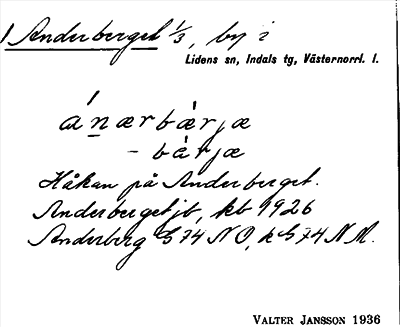 1 Anderberget 1/3, by i
Lidens sn, Indals tg, Västernorrl. l.
ánærbær̀jæ
- bær̀jæ
Håkan på Anderberget.
Anderberget jb, kb 1926
Anderberg G 74 NO, k G 74 NM.
VALTER JANSSON 1936